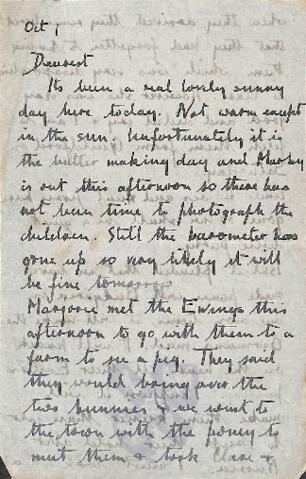 Oct 1
Dearest
Its been a real lovely sunny
day here today. Not warm except
in the sun. Unfortunately it is
the butter making day and
is out this afternoon so there has
not been time to photograph the
children. Still the barometer has
gone up so very likely it will
be fine tomorrow
Marjorie met the Ewings this
afternoon to go with them to a
farm to see a pig. They said
they would bring over the
two bunnies & we went to
the town with the pony to
meet them & took &